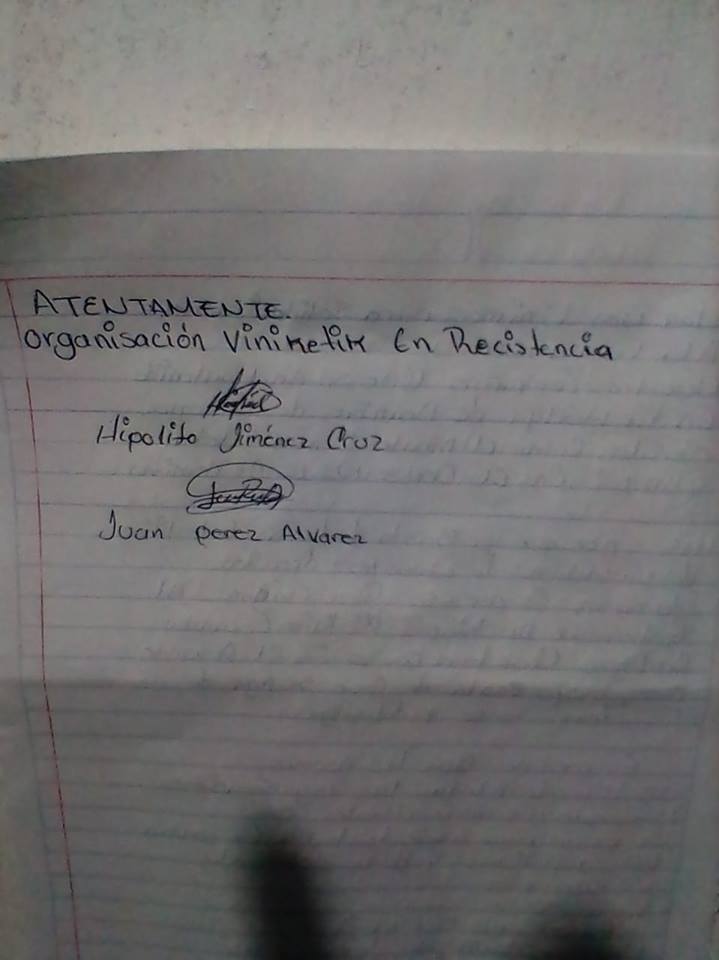 ATENTAMENTE.
organisación Viniketik En Recistencia
Hipolito Jiménez Cruz
Juan perez Alvarez